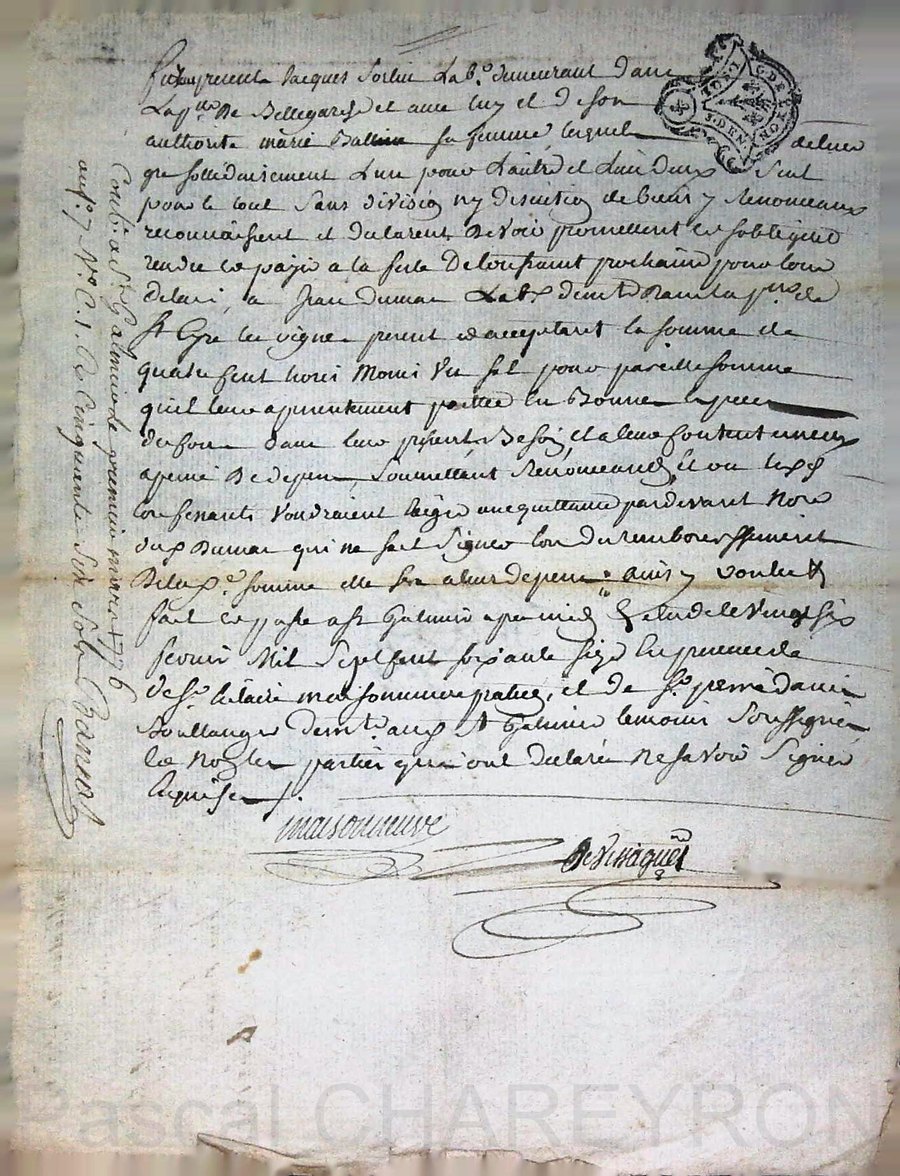 fut present Jacques Sorlin Lab.r demeurant dans
La p.sse De Bellegarde et avec luy et de son
authorité marie Ballme sa femme lesquels de leur
gre sollidairement L'un pour L'autre et L'un deux Seul
pour le tout Sans division ny discution de biens y Renonceans
reconnaissent et declarent Devoir promettent et sobligent
rendre et payer a la feste De toussaint prochaine pour tout
delai, a Jean dumas Lab.r demt Dans la p.sse de
St Cyre les vignes present et acceptant la somme de
quatre sent livres Moins un sol pour pareille somme
qu'il leur a presentement prettée En Bonnes Espèces
du Cours dans leur present Besoin et a leur Contentement
a peine De depens, Soumettant Renonceant, Et ou les
Confessants Voudraient Exiger une quittance pardevant No.re
dud Dumas qui ne sait Signer lors du remboursement
De lad.e somme elle sera a leurs depens ainsy voulu
fait et passé a St Galmier apres midy Etude le Vingt six
fevrier Mil Sept Cent soixante seize En presence de
de S.r hilaire maisonneuve praticien, et de S.r pierre danis
boullanger demt. aud St Galmier temoins Soussignés
Et Non les parties qui ont declaré Ne savoir Signer
Enquises /.
maisonneuve
DeVissaguet
Contr.é a St Galmier le premier mars 1776
auf.o 7 N.o C. 1. Re Cinquante Six sols Barrot
G. DE LYON
3. DEN.
Pascal CHAREYRON